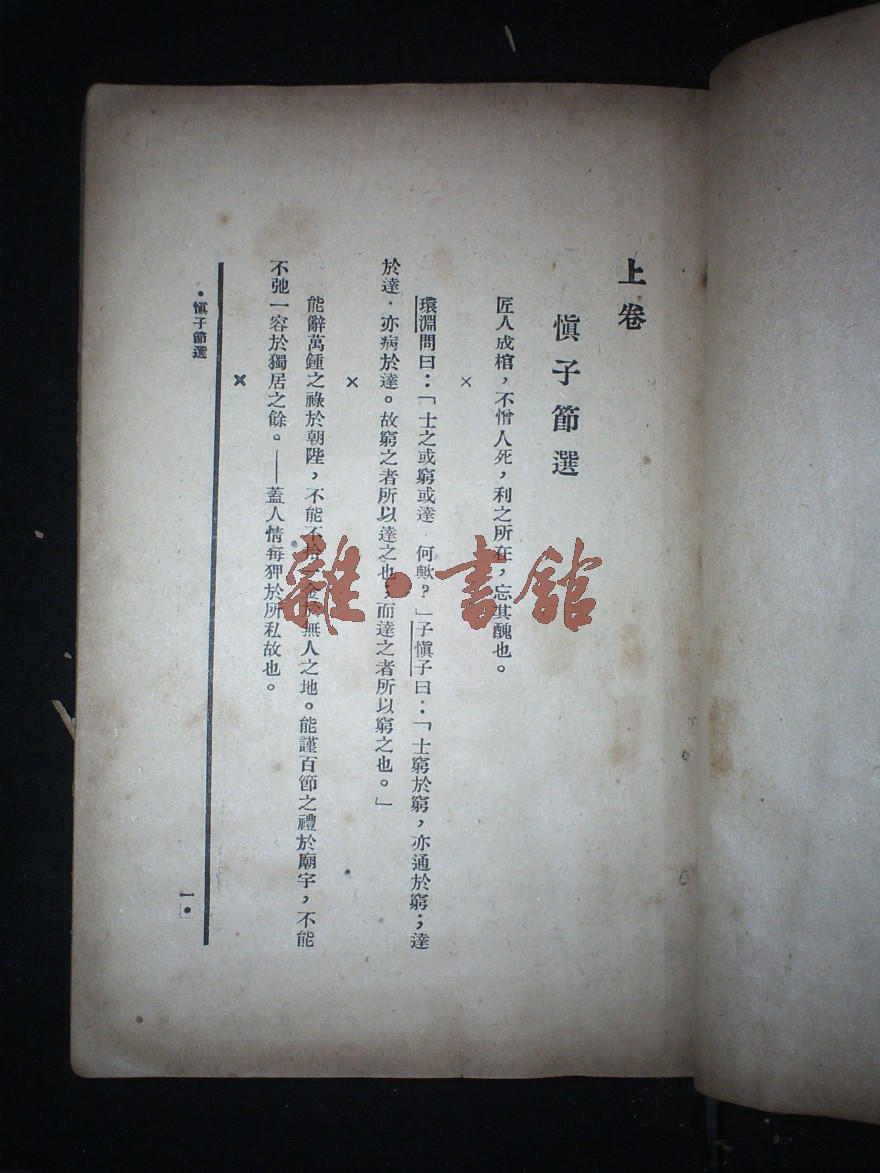 上卷
慎子節選
匠人成棺，不憎人死，利之所在，忘其醜也。
×
環淵問曰：「士之或窮或達 何歟？」子慎子曰：「士窮於窮，亦通於窮；達
於達．亦病於達。故窮之者所以達之也；而達之者所以窮之也。」
×
能辭萬鍾之祿於朝陛，不能不拾一金於無人之地。能謹百節之禮於廟宇，不能
不弛一容於獨居之餘。——蓋人情每狎於所私故也。
×
•慎子節選
一•
雜•書館